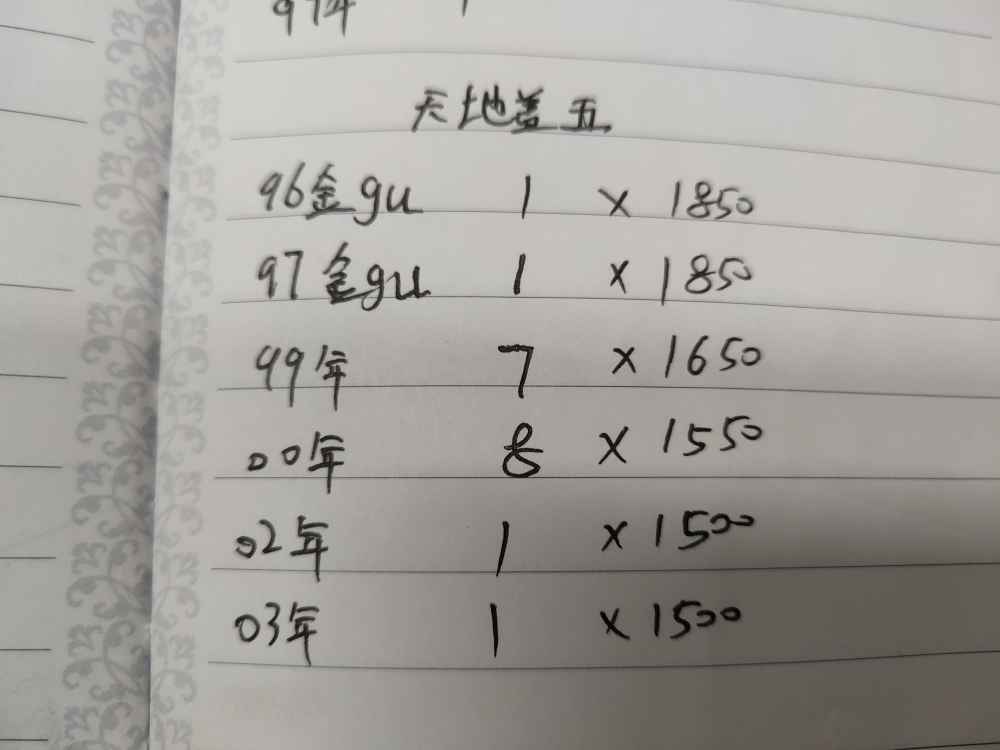 97年 1
天地盖五
96金gu 1 × 1850
97金gu 1 × 1850
99年 7 × 1650
00年 8 × 1550
02年 1 × 1500
03年 1 × 1500